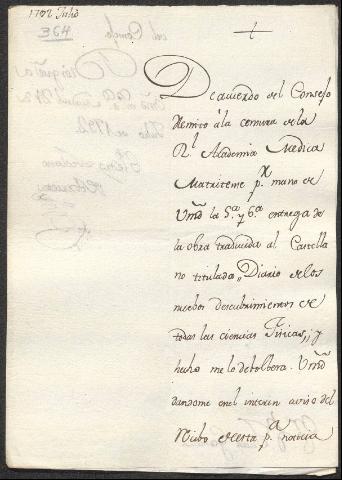 1792 Julio
364
De acuerdo del Consejo
Remito à la censura de la
Rl Academia Medica
Matritense pr mano de
Vmd la 5a y 6a entrega de
la obra traducida al Castella
no titulada, Diario de los
nuebos descubrimientos de
todas las ciencias Fisicas,, y
hecho me lo debolbera Vmd
dandome en el interin aviso del
Recibo de esta pa noticia